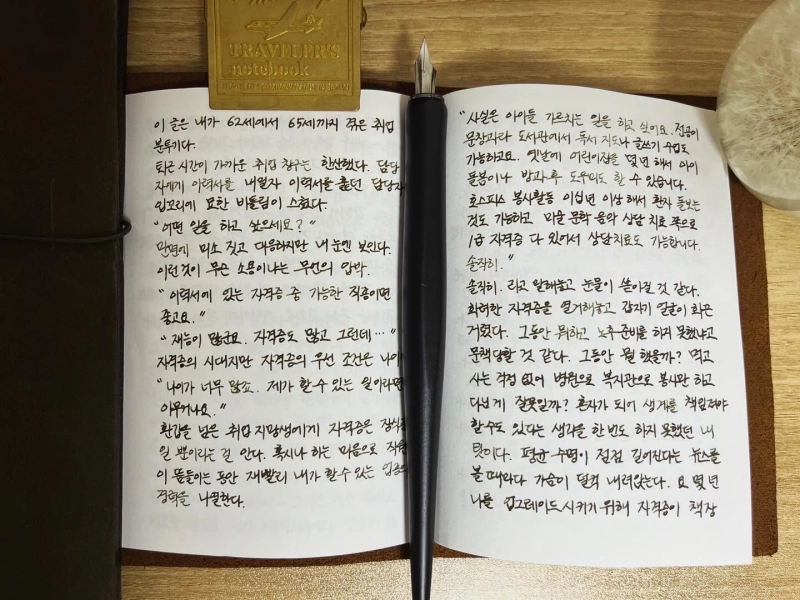 TRAVELER'S
notebook
이 글은 내가 62세에서 65세까지 겪은 취업
분투기다.
퇴근 시간이 가까운 취업 창구는 한산했다. 담당
자에게 이력서를 내밀자 이력서를 훑던 담당자
입꼬리에 묘한 비틀림이 스쳤다.
"어떤 일을 하고 싶으세요?"
만면에 미소 짓고 대응하지만 내 눈엔 보인다.
이런 것이 무슨 소용이냐는 무언의 압박.
"이력서에 있는 자격증 중 가능한 직종이면
좋고요."
"재능이 많군요. 자격증도 많고 그런데…"
자격증의 시대지만 자격증의 우선 조건은 나이
"나이가 너무 많죠. 제가 할 수 있는 일이라면
아무거나요."
환갑을 넘은 취업 지망생에게 자격증은 장식
일 뿐이라는 걸 안다. 혹시나 하는 마음으로 직원
이 뜸들이는 동안 재빨리 내가 할 수 있는
경력을 나열한다.
"사실은 아이들 가르치는 일을 하고 싶어요. 전공이
문창과라 도서관에서 독서 지도나 글쓰기 수업도
가능하고요. 옛날에 어린이집을 몇 년 해서 아이
돌봄이나 방과 후 도우미도 할 수 있습니다.
호스피스 봉사활동 이십 년 이상 해서 환자 돌보는
것도 가능하고 미술 문학 음악 상담 치료 쪽으로
1급 자격증 다 있어서 상담치료도 가능합니다.
솔직히."
솔직히. 라고 말해놓고 눈물이 쏟아질 것 같다.
화려한 자격증을 열거해놓고 갑자기 얼굴이 화끈
거렸다. 그동안 뭐하고 노후 준비를 하지 못했냐고
문책당할 것 같다. 그동안 뭘 했을까? 먹고
사는 걱정 없이 병원으로 복지관으로 봉사만 하고
다닌 게 잘못일까? 혼자가 되어 생계를 책임져야
할 수도 있다는 생각을 한 번도 하지 못했던 내
탓이다. 평균 수명이 점점 길어진다는 뉴스를
볼 때마다 가슴이 덜컥 내려앉는다. 요 몇 년
나를 업그레이드시키기 위해 자격증이 책장